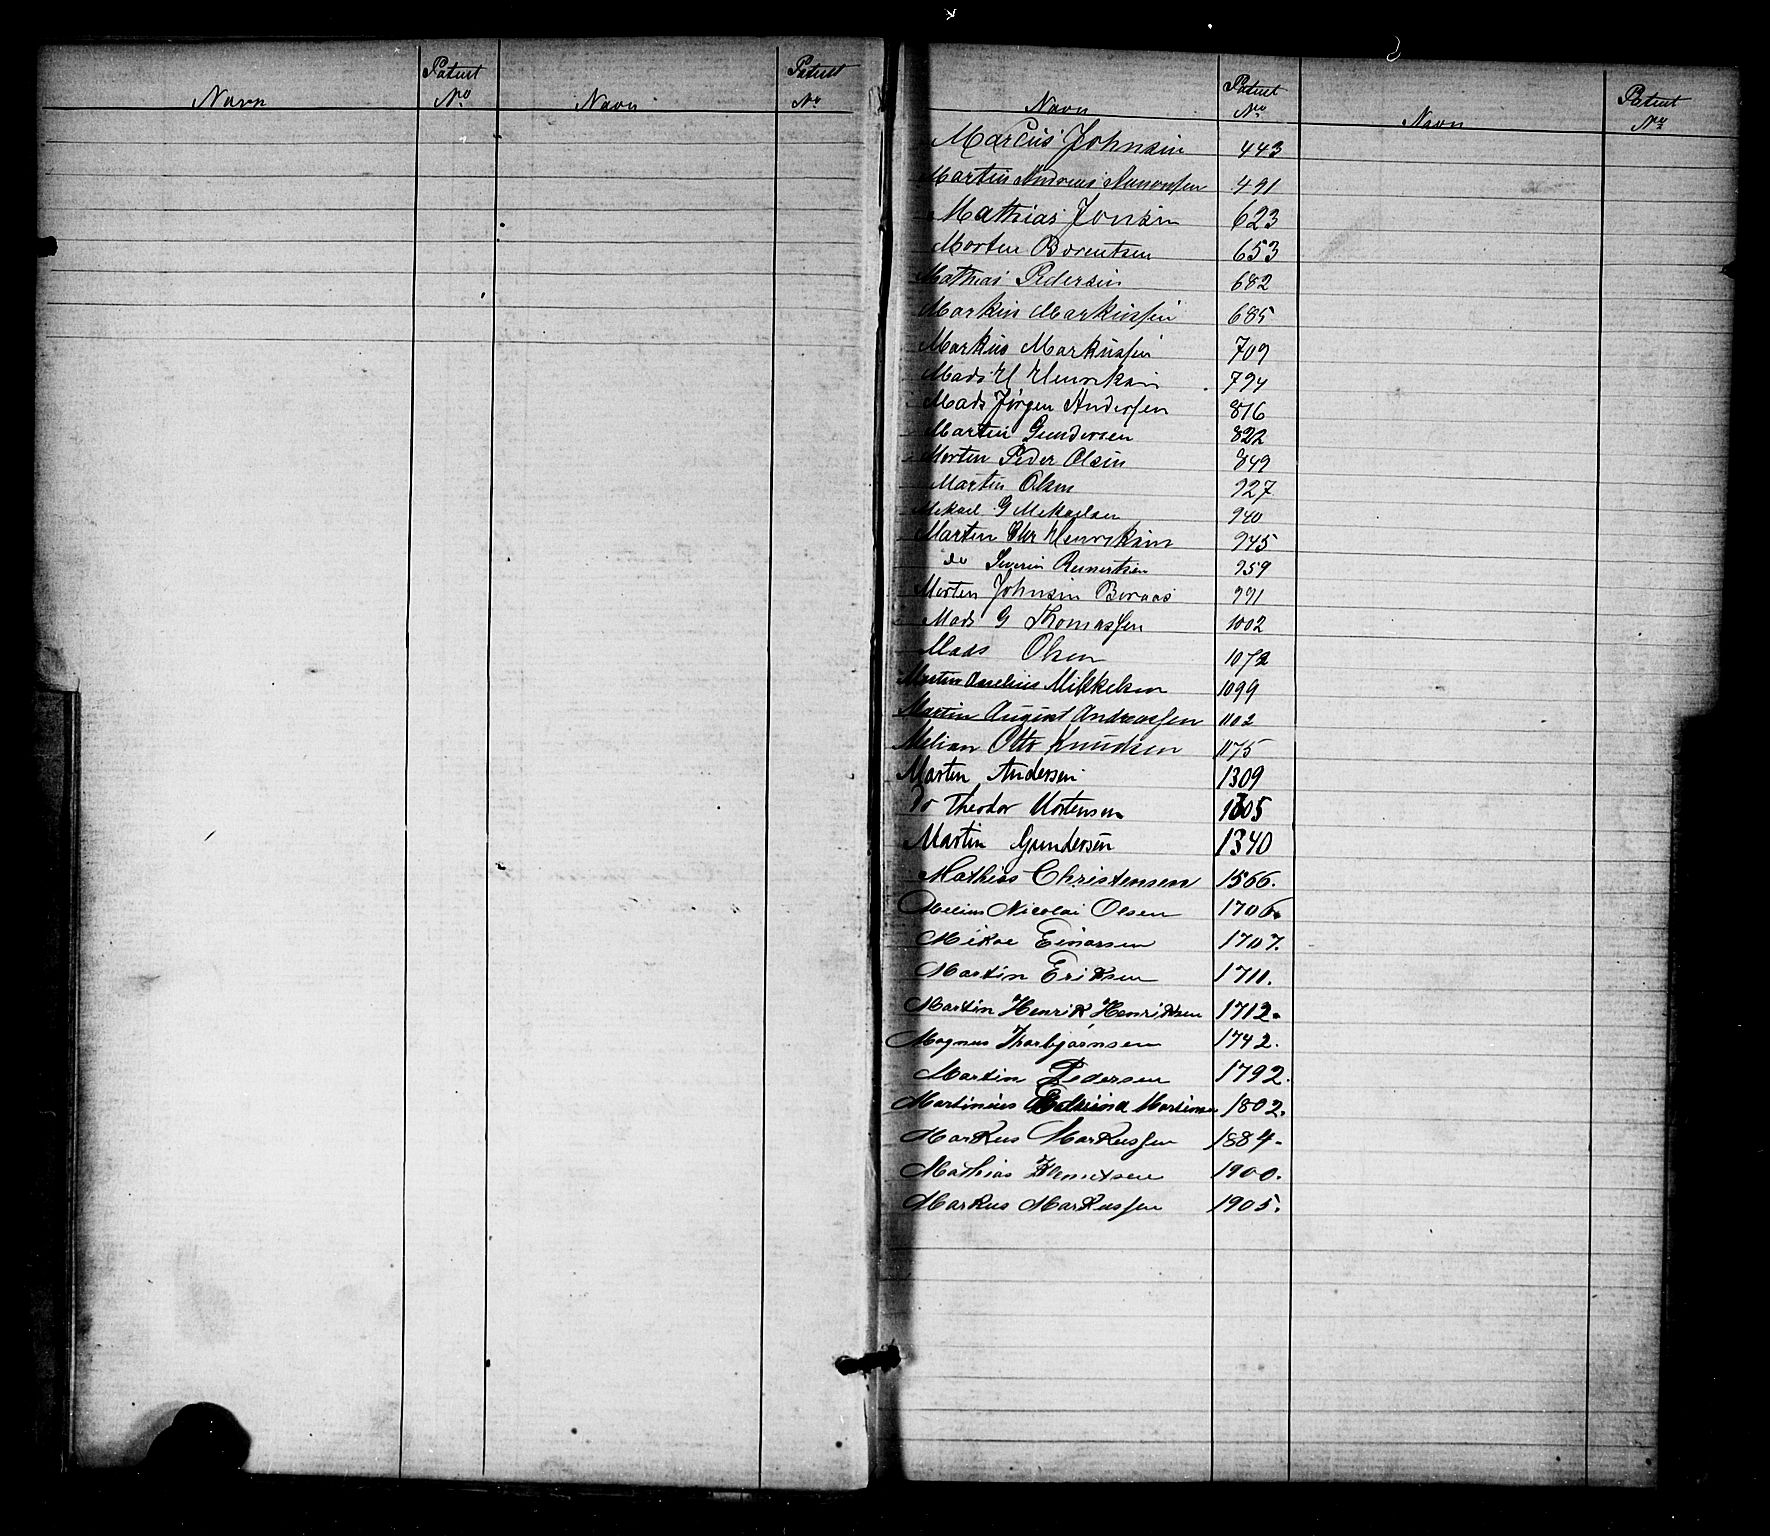 Navn Patent No Navn Patent No
Navn Patent No Navn Patent No
Marcus Johnsen 443
Martin Andreas 491
Mathias Jonsen 623
Morten Berentsen 653
Mathias Pedersen 682
Markus Markussen 685
Markus Markussen 709
Mads H Henriksen 794
Mads Jørgen Andersen 816
Martin Gundersen 822
Morten Peder Olsen 849
Martin Olsen 927
Mekael G Mekaelsen 940
Marten Chr Henriksen 945
do Severin Reinertsen 959
Morten Johnsen Boraas 991
Mads G Thomassen 1002
Mads Olsen 1072
Martin Mikkelsen 1099
Martin August Andreassen 1102
Melian Otto Knudsen 1175
Marten Andersen 1309
Do Theodor Mortensen 1305
Martin Gundersen 1340
Mathias Christensen 1566.
Melius Nicolai Olsen 1706.
Mikae Einarsen 1707.
Martin Eriksen 1711.
Martin Henrik Henriksen 1712.
Magnus Thorbjørnsen 1742.
Martin Pedersen 1792.
Martinius 1802.
Markus Markussen 1884.
Mathias 1900.
Markus Markussen 1905.